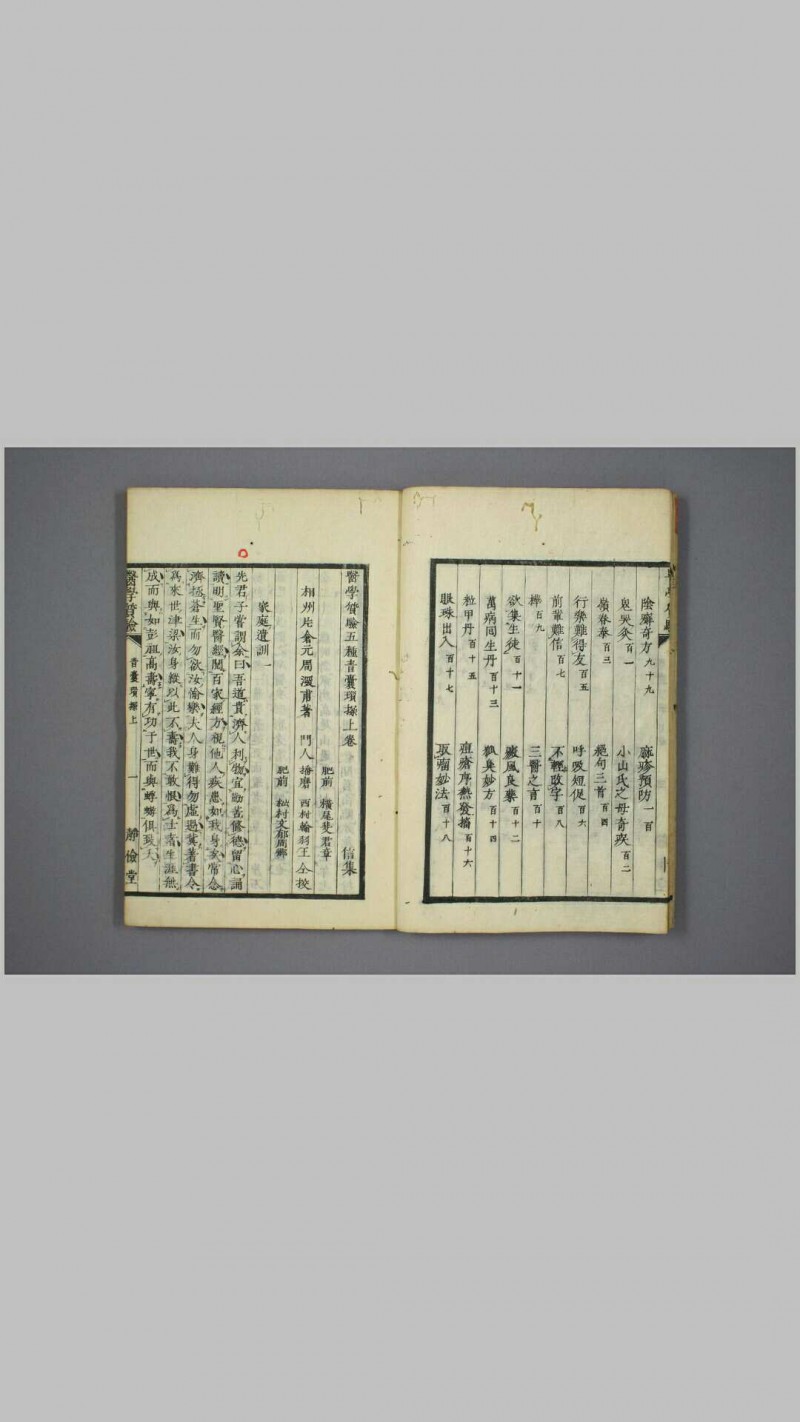 陰癬奇方 九十九
麻疹預防 一百
鬼哭灸 百一
小山氏之母奇疾 百二
嶺春泰 百三
絕句三首 百四
行樂難得友 百五
呼吸短促 百六
前輩難信 百七
不輕改字 百八
樺 百九
三醫之言 百十
欲集生徒 百十一
癜風良藥 百十二
萬病回生丹 百十三
狐臭妙方 百十四
粒甲丹 百十五
痘瘡序熱發搐 百十六
眼珠出入 百十七
取瘤妙法 百十八
醫學質驗五種青囊瑣探上卷 信集
相州片倉元周深甫著
肥前 橫尾斐君章
門人 播磨 西村翰羽王 仝挍
肥前 松村文郁周鄉
家庭遺訓 一
先君子嘗謂余曰吾道貴濟人利物宜勤苦修德留心誦
讀明聖賢醫經閱百家經方視他人疾患如我身家常念
濟拯蒼生而勿欲汝愉樂夫人身難得勿虛過冀著書令
為來世津梁汝身縱以此不壽我不敢恨為士者生涯無
成而與如彭祖高壽寧有功于世而與蜉蝣俱歿夫
醫學質驗
青囊瑣探上
一
靜儉堂